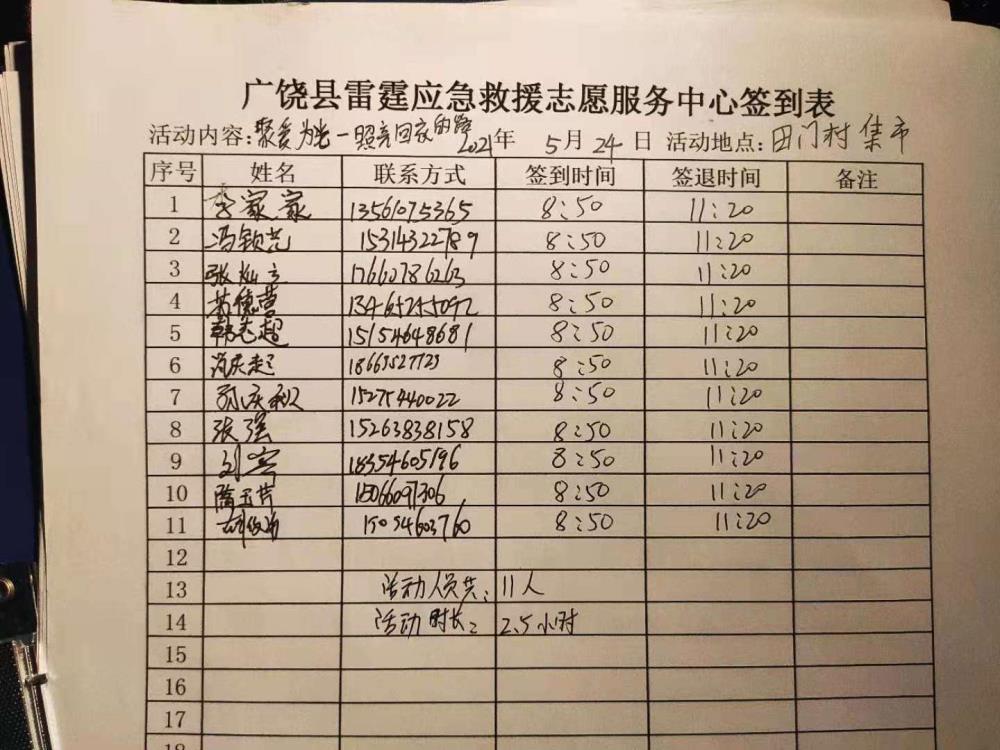 广饶县雷霆应急救援志愿服务中心签到表
活动内容:聚爱为光一照亮回家的路 2021年 5月 24日 活动地点:田门村集市
序号 姓名 联系方式 签到时间 签退时间 备注
1 李家家 13561075365 8:50 11:20
2 冯钦芝 15314322789 8:50 11:20
3 17660786263 8:50 11:20
4 苏德营 8:50 11:20
5 韩志超 15154648681 8:50 11:20
6 18663527723 8:50 11:20
7 孙庆利 15275440022 8:50 11:20
8 张强 15263838158 8:50 11:20
9 18354605196 8:50 11:20
10 隋玉芹 15066097306 8:50 11:20
11 15054603760 8:50 11:20
12
13 活动人员共:11人
14 活动时长:2.5小时
15
16
17
18